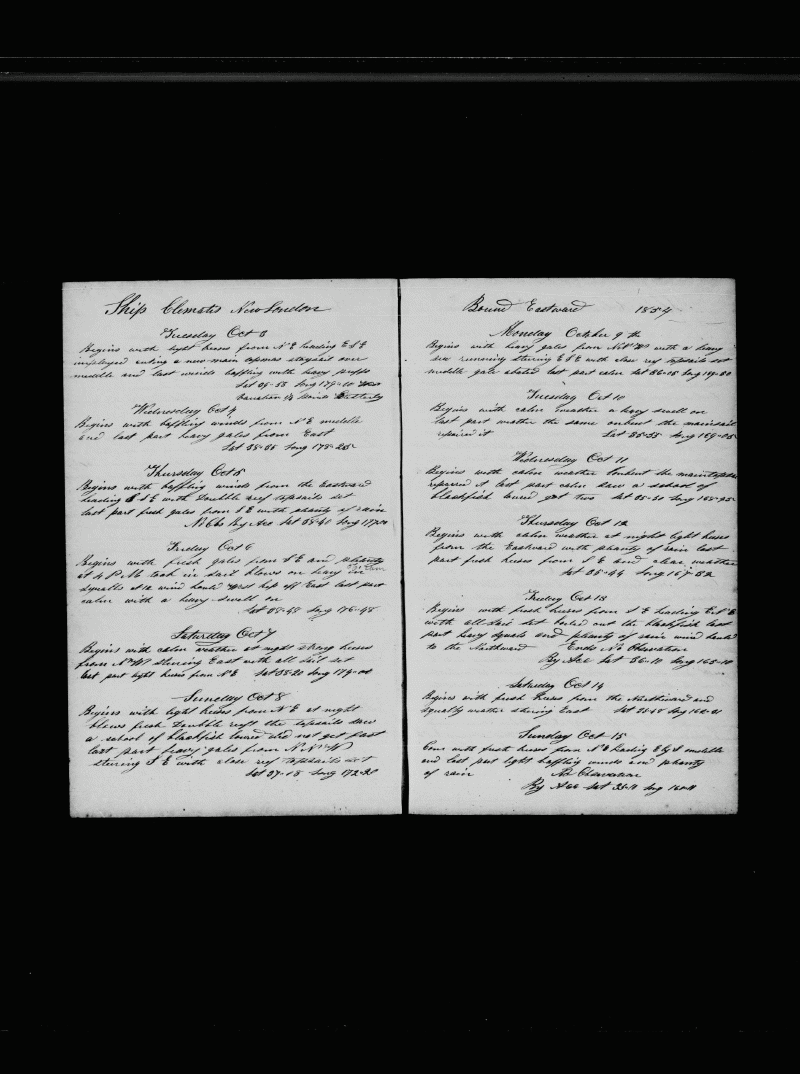 Ship Clematis New London
Tuesday Oct 3
Begins with light breses from N E heading E S E
imployed cuting a new main topmas staysail over
middle and last winds baffling with heavy puffs
Lat 39-55 Long 179-10
variation 1/4 Easterly
Wednesday Oct 4
Begins with baffling winds from N E middle
and last part heavy gales from East
Lat 38-35 Long 178-25
Thursday Oct 5
Begins with baffling winds from the Eastward
heading S E with Double reef topsails set
last part fresh gales from S E with planty of rain
No Obs By Acc Lat 38-40 Long 177-00
Friday Oct 6
Begins with fresh gales from S E and planty
at 4 P M took in sail blows on heavy in
squalls at 12 wind hauld West kep off East last part
calm with a heavy swell on
Lat 38-48 Long 176-48
Saturday Oct 7
Begins with calm weather at night strong breses
from N W stering East with all sail set
last part light breses from N E Lat 38-20 Long 174-00
Sunday Oct 8
Begins with light breses from N E at night
blows fresh Double reeft the topsails saw
a school of blackfish lowerd did not get fast
last part heavy gales from N N W
steering S E with close reef topsails set
Lat 37-15 Long 172-20
Bound Eastward 1854
Monday October 9 th
Begins with heavy gales from with a heavy
sea running stering E S E with close reef topsails set
middle gale abated last part calm Lat 36-05 Long 169-50
Tuesday Oct 10
Begins with calm weather a heavy swell on
last part weather the same onbent the mainsail
repaired it Lat 35-55 Long 169-05
Wednesday Oct 11
Begins with calm weather the maintopsail
repared it last part calm saw a school of
blackfish lowerd got two Lat 35-50 Long 168-25
Thursday Oct 12
Begins with calm weather at night light breses
from the Eastward with planty of rain last
part fresh breses from S E and clear weather
Lat 35-44 Long 167-52
Friday Oct 13
Begins with fresh breses from S E heading
with all sail set boiled out the blackfish last
part heavy squals and planty of rain wind hauld
to the Northward Ends No Observation
By Acc Lat 36-10 Long 165-10
Saturday Oct 14
Begins with fresh breses from the Northward and
squally weather stering East Lat 35-58 Long 162-21
Sunday Oct 15
Coms with fresh breses from N E heading E by S middle
and last part light baffling winds and planty
of rain No Observation
By Acc Lat 35-11 Long 160-11